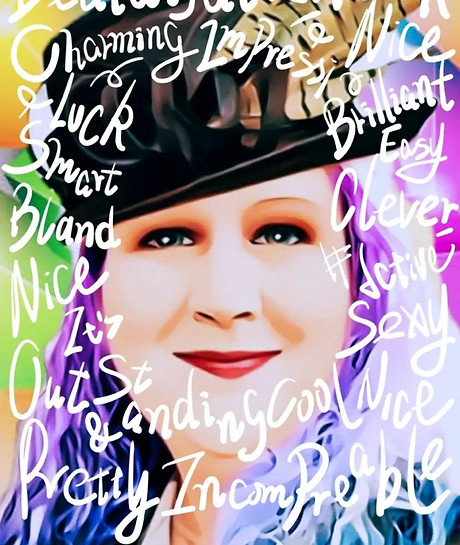 Charming Impressi Nice
& Luck
Brilliant
Smart
Easy
Bland
Clever
Nice
#Active
It's
Sexy
OutSt
& anding Cool Nice
Pretty Incompreable